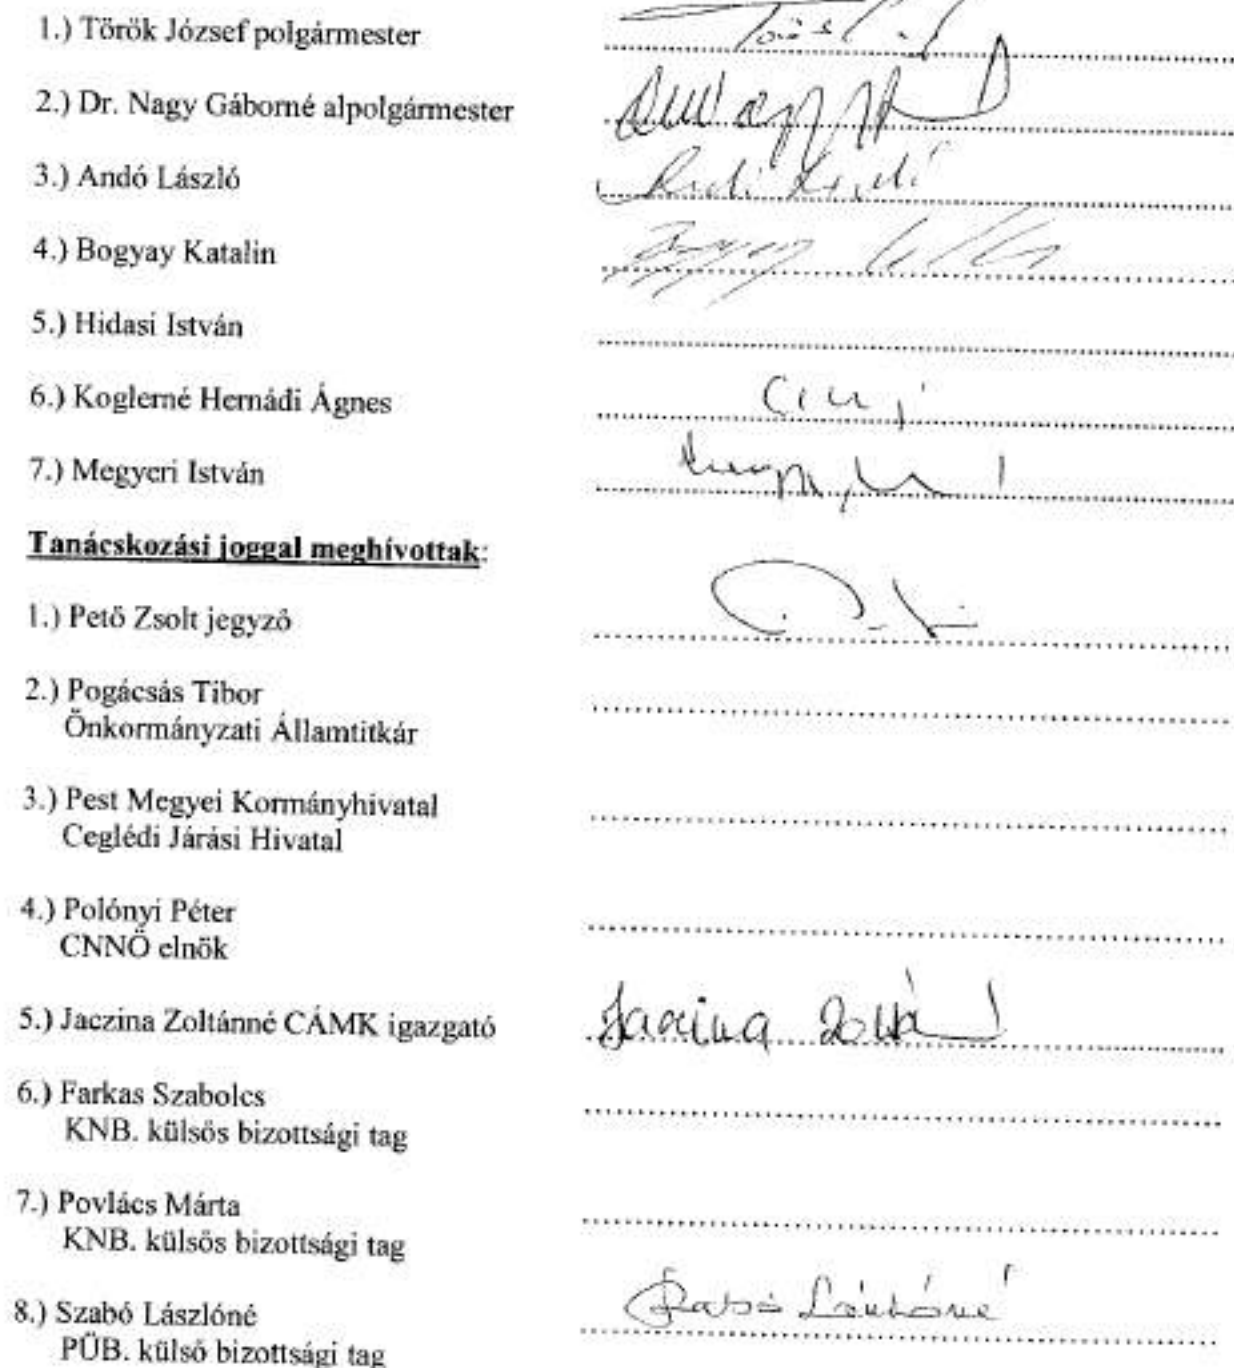 1.) Török József polgármester
2.) Dr. Nagy Gáborné alpolgármester
3.) Andó László
4.) Bogyay Katalin
5.) Hidasi István
6.) Koglerné Hernádi Ágnes
7.) Megyeri István
Tanácskozási joggal meghívottak:
1.) Pető Zsolt jegyző
2.) Pogácsás Tibor
Önkormányzati Államtitkár
3.) Pest Megyei Kormányhivatal
Ceglédi Járási Hivatal
4.) Polónyi Péter
CNNÖ elnök
5.) Jaczina Zoltánné CÁMK igazgató Jaczina Zoltánné
6.) Farkas Szabolcs
KNB. külsős bizottsági tag
7.) Povlács Márta
KNB. külsős bizottsági tag
8.) Szabó Lászlóné Szabó Lászlóné
PÜB. külső bizottsági tag